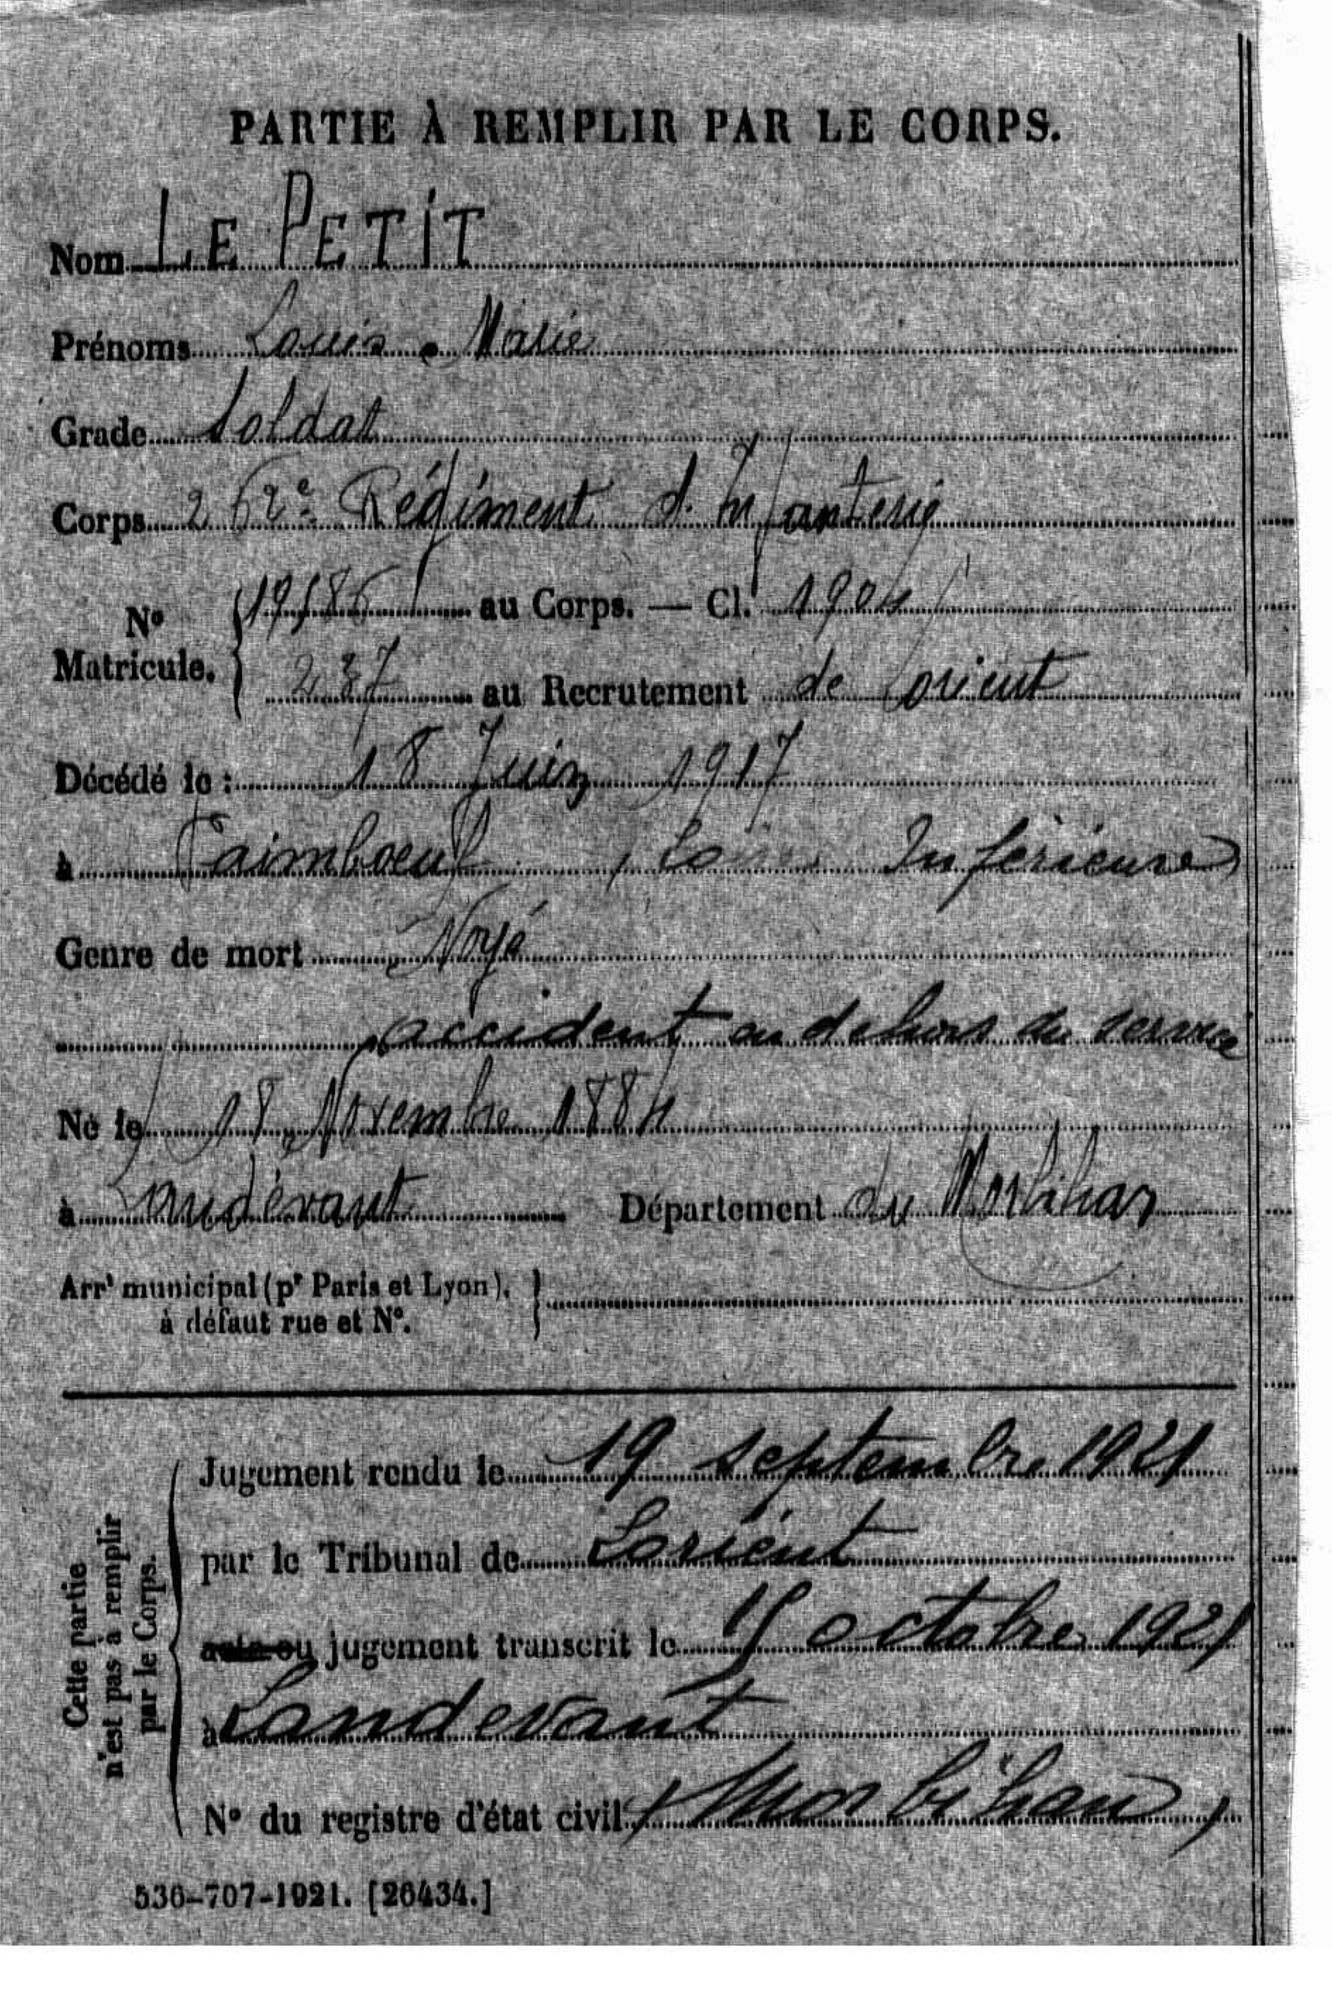 PARTIE À REMPLIR PAR LE CORPS.
Nom LE PETIT
Prénoms Louis Marie
Grade Soldat
Corps 262e Régiment d'Infanterie
No Matricule. au Corps. — Cl. 1904
237 au Recrutement de Lorient
Décédé le : 18 Juin 1917
à Paimboeuf (Loire Inférieure)
Genre de mort Noyé
accident en dehors du service
Né le 18 Novembre 1884
à Landévant Département du Morbihan
Arrt municipal (pr Paris et Lyon),
à défaut rue et No.
Cette partie
n'est pas à remplir
par le Corps.
Jugement rendu le 19 septembre 1921
par le Tribunal de Lorient
acte ou jugement transcrit le octobre 1921
à Landevant
No du registre d'état civil (Morbihan)
536-707-1921. [26434.]